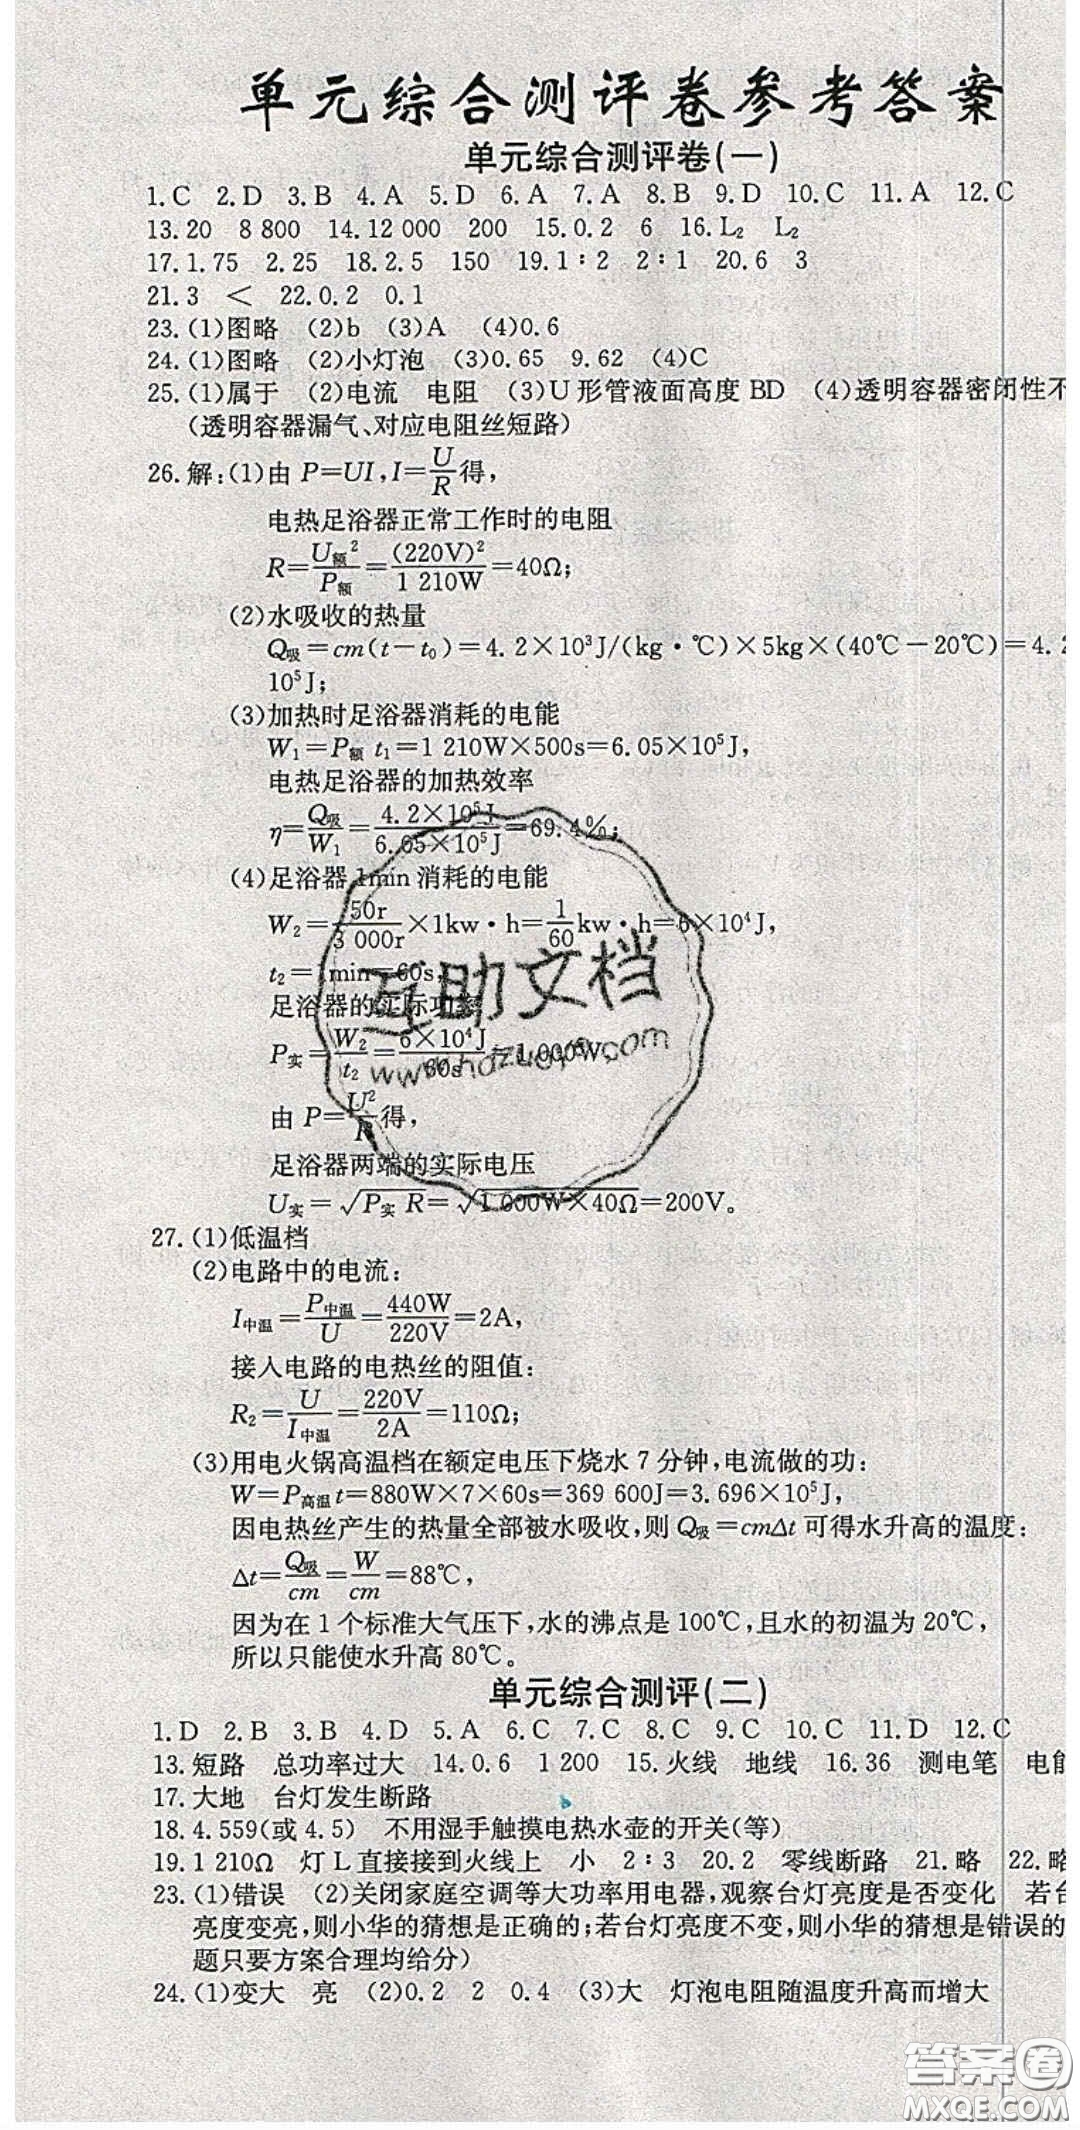 单元综合测评卷参考答案
单元综合测评卷(一)
1.C 2.D 3.B 4.A 5.D 6.A 7.A 8.B 9.D 10.C 11.A 12.C
13.20 8 800 14.12 000 200 15.0.2 6 16.L₂ L₂
17.1.75 2.25 18.2.5 150 19.1∶2 2∶1 20.6 3
21.3 < 22.0.2 0.1
23.(1)图略 (2)b (3)A (4)0.6
24.(1)图略 (2)小灯泡 (3)0.65 9.62 (4)C
25.(1)属于 (2)电流 电阻 (3)U形管液面高度 BD (4)透明容器密闭性不
(透明容器漏气、对应电阻丝短路)
26.解:(1)由 P=UI,I=U/R得,
电热足浴器正常工作时的电阻
R=U额²/P额=(220V)²/1 210W=40Ω;
(2)水吸收的热量
Q吸=cm(t-t₀)=4.2×10³J/(kg·℃)×5kg×(40℃-20℃)=4.2
10⁵J;
(3)加热时足浴器消耗的电能
W₁=P额 t₁=1 210W×500s=6.05×10⁵J,
电热足浴器的加热效率
η=Q吸/W₁=4.2×10⁵J/6.05×10⁵J=69.4%;
(4)足浴器 1min 消耗的电能
W₂=50r/3 000r×1kw·h=1/60kw·h=6×10⁴J,
t₂=1min=60s,
足浴器的实际功率
P实=W₂/t₂=6×10⁴J/60s=1 000W,
由 P=U²/R得,
足浴器两端的实际电压
U实=√(P实 R)=√(1 000W×40Ω)=200V。
27.(1)低温档
(2)电路中的电流:
I中温=P中温/U=440W/220V=2A,
接入电路的电热丝的阻值:
R₂=U/I中温=220V/2A=110Ω;
(3)用电火锅高温档在额定电压下烧水 7 分钟,电流做的功:
W=P高温t=880W×7×60s=369 600J=3.696×10⁵J,
因电热丝产生的热量全部被水吸收,则 Q吸=cmΔt 可得水升高的温度:
Δt=Q吸/cm=W/cm=88℃,
因为在 1 个标准大气压下,水的沸点是 100℃,且水的初温为 20℃,
所以只能使水升高 80℃。
单元综合测评(二)
1.D 2.B 3.B 4.D 5.A 6.C 7.C 8.C 9.C 10.C 11.D 12.C
13.短路 总功率过大 14.0.6 1 200 15.火线 地线 16.36 测电笔 电能
17.大地 台灯发生断路
18.4.559(或 4.5) 不用湿手触摸电热水壶的开关(等)
19.1 210Ω 灯 L 直接接到火线上 小 2∶3 20.2 零线断路 21.略 22.略
23.(1)错误 (2)关闭家庭空调等大功率用电器,观察台灯亮度是否变化 若台
亮度变亮,则小华的猜想是正确的;若台灯亮度不变,则小华的猜想是错误的
题只要方案合理均给分)
24.(1)变大 亮 (2)0.2 2 0.4 (3)大 灯泡电阻随温度升高而增大
互助文档
www.hdzuoye.com
答案圈
MXQE.COM